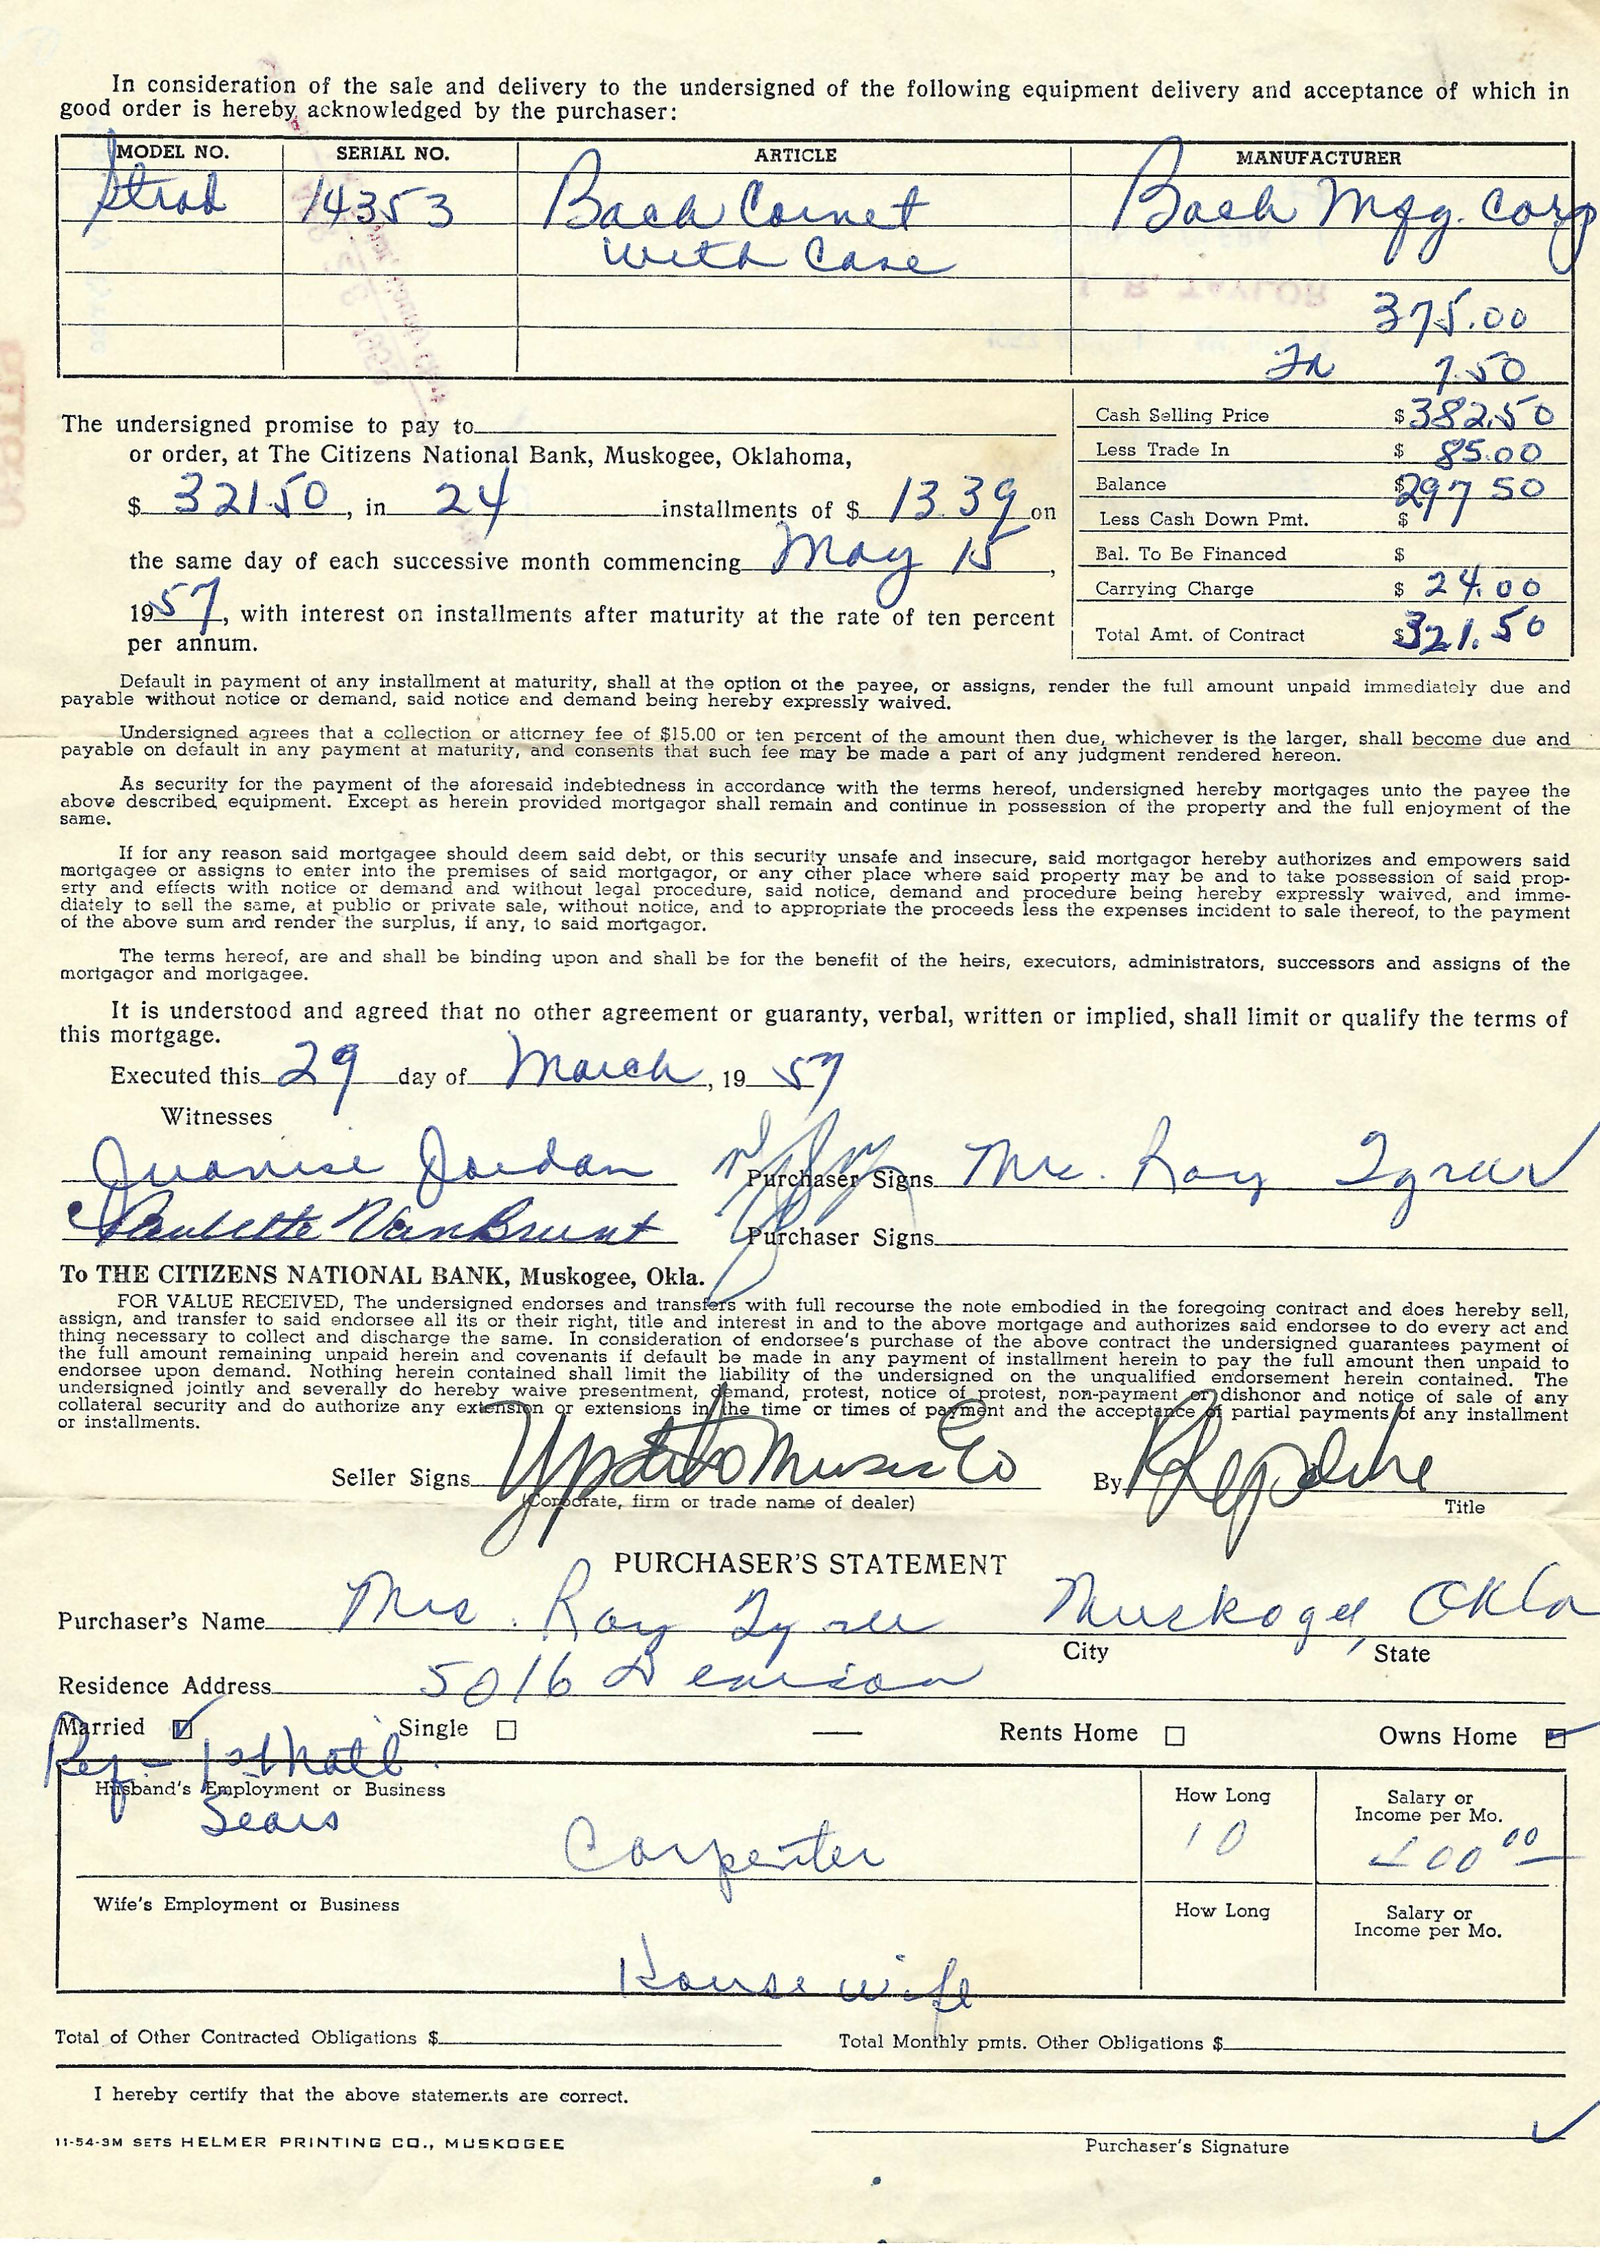 In consideration of the sale and delivery to the undersigned of the following equipment delivery and acceptance of which in
good order is hereby acknowledged by the purchaser:
MODEL NO. SERIAL NO. ARTICLE MANUFACTURER
Strad 14353 Bach Cornet Bach Mfg. Corp
with Case
J. B. TAYLOR
375.00
7.50
The undersigned promise to pay to
or order, at The Citizens National Bank, Muskogee, Oklahoma,
$ 321.50, in 24 installments of $ 13 39 on
the same day of each successive month commencing May 15,
1957, with interest on installments after maturity at the rate of ten percent
per annum.
Cash Selling Price $382.50
Less Trade In $ 85.00
Balance $297 50
Less Cash Down Pmt. $
Bal. To Be Financed $
Carrying Charge $ 24.00
Total Amt. of Contract $321.50
Default in payment of any installment at maturity, shall at the option of the payee, or assigns, render the full amount unpaid immediately due and
payable without notice or demand, said notice and demand being hereby expressly waived.
Undersigned agrees that a collection or attorney fee of $15.00 or ten percent of the amount then due, whichever is the larger, shall become due and
payable on default in any payment at maturity, and consents that such fee may be made a part of any judgment rendered hereon.
As security for the payment of the aforesaid indebtedness in accordance with the terms hereof, undersigned hereby mortgages unto the payee the
above described equipment. Except as herein provided mortgagor shall remain and continue in possession of the property and the full enjoyment of the
same.
If for any reason said mortgagee should deem said debt, or this security unsafe and insecure, said mortgagor hereby authorizes and empowers said
mortgagee or assigns to enter into the premises of said mortgagor, or any other place where said property may be and to take possession of said prop-
erty and effects with notice or demand and without legal procedure, said notice, demand and procedure being hereby expressly waived, and imme-
diately to sell the same, at public or private sale, without notice, and to appropriate the proceeds less the expenses incident to sale thereof, to the payment
of the above sum and render the surplus, if any, to said mortgagor.
The terms hereof, are and shall be binding upon and shall be for the benefit of the heirs, executors, administrators, successors and assigns of the
mortgagor and mortgagee.
It is understood and agreed that no other agreement or guaranty, verbal, written or implied, shall limit or qualify the terms of
this mortgage.
Executed this 29 day of March, 19 57
Witnesses
Juanise Jordan Purchaser Signs Mrs. Ray Tyree
Paulette VanBrunt Purchaser Signs
To THE CITIZENS NATIONAL BANK, Muskogee, Okla.
FOR VALUE RECEIVED, The undersigned endorses and transfers with full recourse the note embodied in the foregoing contract and does hereby sell,
assign, and transfer to said endorsee all its or their right, title and interest in and to the above mortgage and authorizes said endorsee to do every act and
thing necessary to collect and discharge the same. In consideration of endorsee's purchase of the above contract the undersigned guarantees payment of
the full amount remaining unpaid herein and covenants if default be made in any payment of installment herein to pay the full amount then unpaid to
endorsee upon demand. Nothing herein contained shall limit the liability of the undersigned on the unqualified endorsement herein contained. The
undersigned jointly and severally do hereby waive presentment, demand, protest, notice of protest, non-payment or dishonor and notice of sale of any
collateral security and do authorize any extension or extensions in the time or times of payment and the acceptance of partial payments of any installment
or installments.
Seller Signs Music Co By
(Corporate, firm or trade name of dealer) Title
PURCHASER'S STATEMENT
Purchaser's Name Mrs. Ray Tyree Muskogee, Okla
City State
Residence Address 5016 Denison
Married Single Rents Home Owns Home
Ref - 1st Natl.
Husband's Employment or Business How Long Salary or Income per Mo.
Sears
Carpenter 10 400 00
Wife's Employment or Business How Long Salary or Income per Mo.
House wife
Total of Other Contracted Obligations $ Total Monthly pmts. Other Obligations $
I hereby certify that the above statements are correct.
11-54-3M SETS HELMER PRINTING CO., MUSKOGEE
Purchaser's Signature